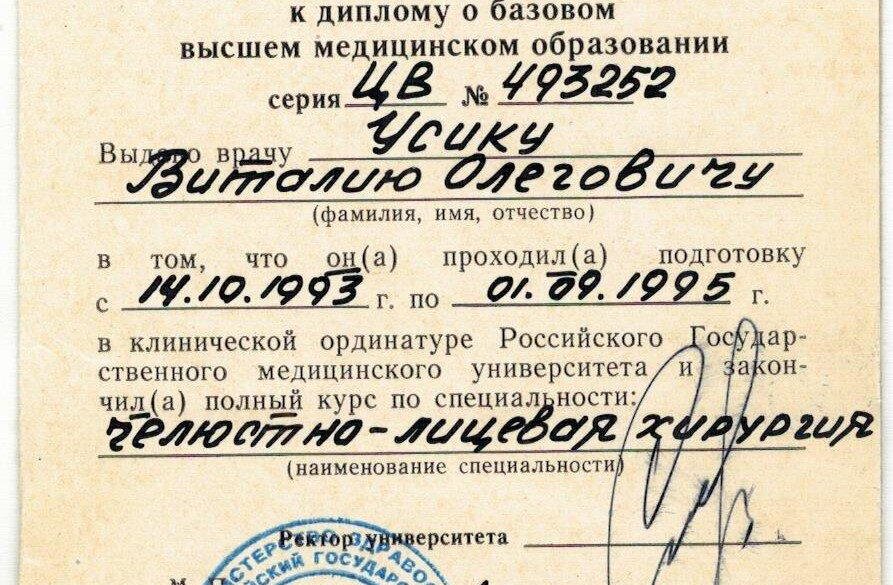 к диплому о базовом
высшем медицинском образовании
серия ЦВ № 493252
Выдано врачу Усику
Виталию Олеговичу
(фамилия, имя, отчество)
в том, что он(а) проходил(а) подготовку
с 14.10.1993 г. по 01.09.1995 г.
в клинической ординатуре Российского Государ-
ственного медицинского университета и закон-
чил(а) полный курс по специальности:
челюстно-лицевая хирургия
(наименование специальности)
Ректор университета